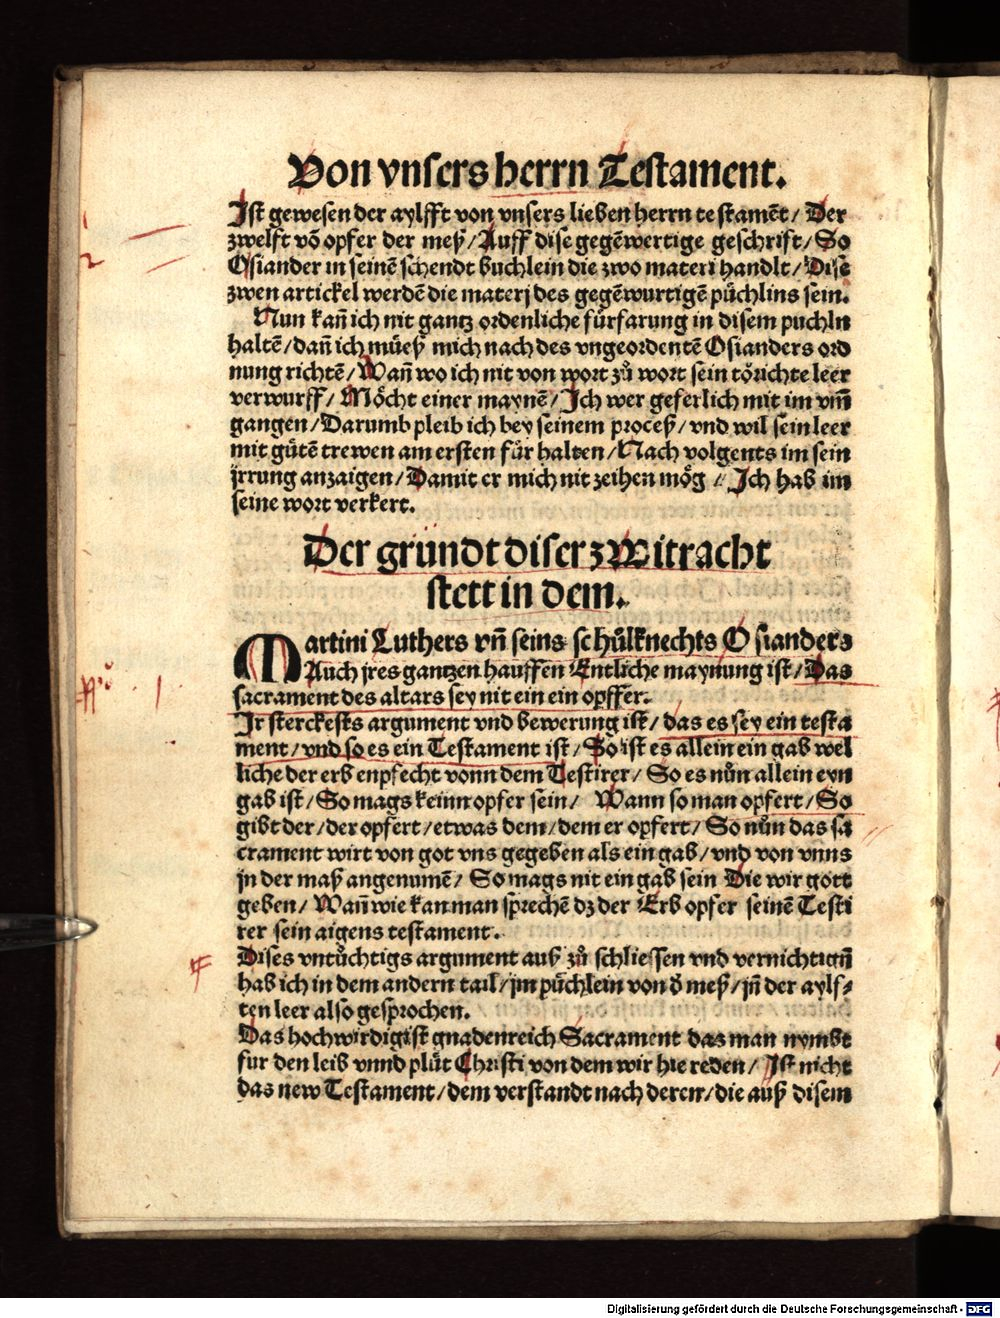 Von vnsers herrn Testament.
Ist gewesen der aylfft von vnsers lieben herrn testamēt / Der
zwelft vō opfer der meß / Auff dise gegēwertige geschrift / So
Osiander in seinē schendt buchlein die zwo materi handlt / Dise
zwen artickel werdē die materj des gegēwurtigē püchlins sein.
Nun kañ ich nit gantz ordenliche fürfarung in disem puchln
haltē / dañ ich müeß mich nach des vngeordentē Osianders ord
nung richtē / Wañ wo ich nit von wort zů wort sein törichte leer
verwurff / Möcht einer maynē / Ich wer geferlich mit im vm̄
gangen / Darumb pleib ich bey seinem proceß / vnd wil sein leer
mit gütē trewen am ersten für halten / Nach volgents im sein
jrrung anzaigen / Damit er mich nit zeihen mög / Ich hab im
seine wort verkert.
Der gründt diser zwitracht
stett in dem.
Martini Luthers vñ seins schülknechts Osianders
Auch jres gantzen hauffen Entliche maynung ist / Das
sacrament des altars sey nit ein ein opffer.
Ir sterckests argument vnd bewerung ist / das es sey ein testa
ment / vnd so es ein Testament ist / So ist es allein ein gab wel
liche der erb enpfecht vonn dem Testirer / So es nůn allein eyn
gab ist / So mags keinn opfer sein / Wann so man opfert / So
gibt der / der opfert / etwas dem / dem er opfert / So nůn das sa
crament wirt von got vns gegeben als ein gab / vnd von vnns
jn der maß angenumē / So mags nit ein gab sein Die wir gott
geben / Wañ wie kan man sprechē dz der Erb opfer seinē Testi
rer sein aigens testament.
Dises vntüchtigs argument auß zů schliessen vnd vernichtigñ
hab ich in dem andern tail / jm püchlein von d̕ meß / jñ der aylf-
ten leer also gesprochen.
Das hochwirdigist gnadenreich Sacrament das man nymbt
fur den leib vnnd plüt Christi von dem wir hie reden / Ist nicht
das new Testament / dem verstandt nach deren / die auß disem
Digitalisierung gefördert durch die Deutsche Forschungsgemeinschaft - DFG